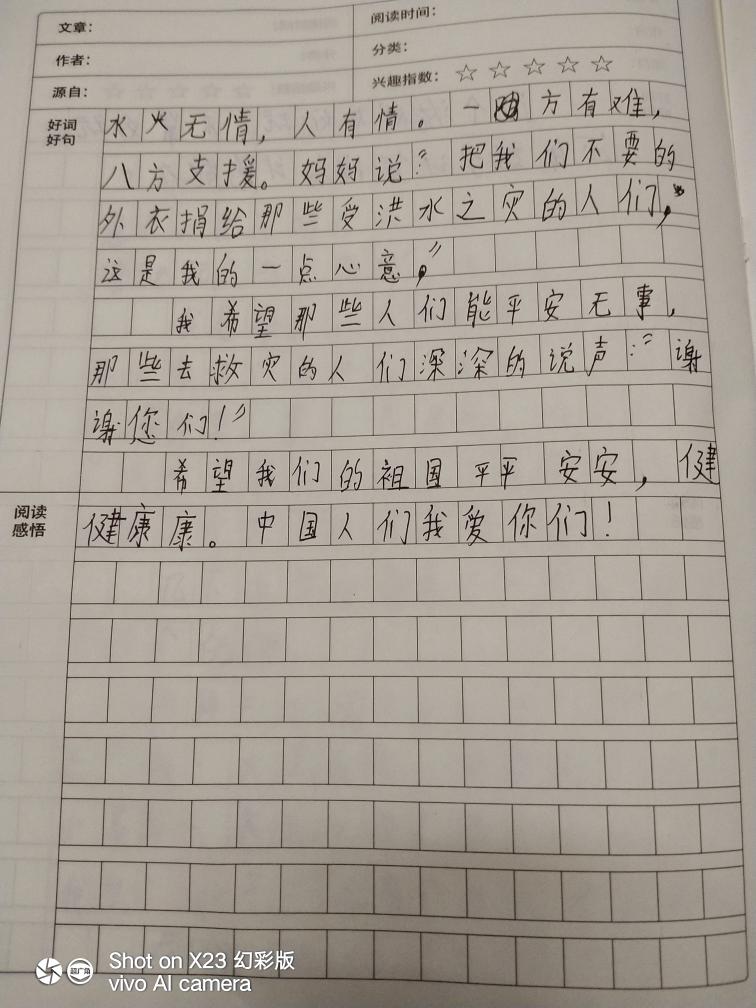 文章：
阅读时间：
作者：
分类：
源自：
兴趣指数：☆☆☆☆☆
好词
好句
水火无情，人有情。一方有难，
八方支援。妈妈说：“把我们不要的
外衣捐给那些受洪水之灾的人们，
这是我的一点心意，”
我希望那些人们能平安无事，
那些去救灾的人们深深的说声：“谢
谢您们！”
希望我们的祖国平平安安，健
阅读
感悟
健康康。中国人们我爱你们！
Shot on X23 幻彩版
vivo AI camera
超广角